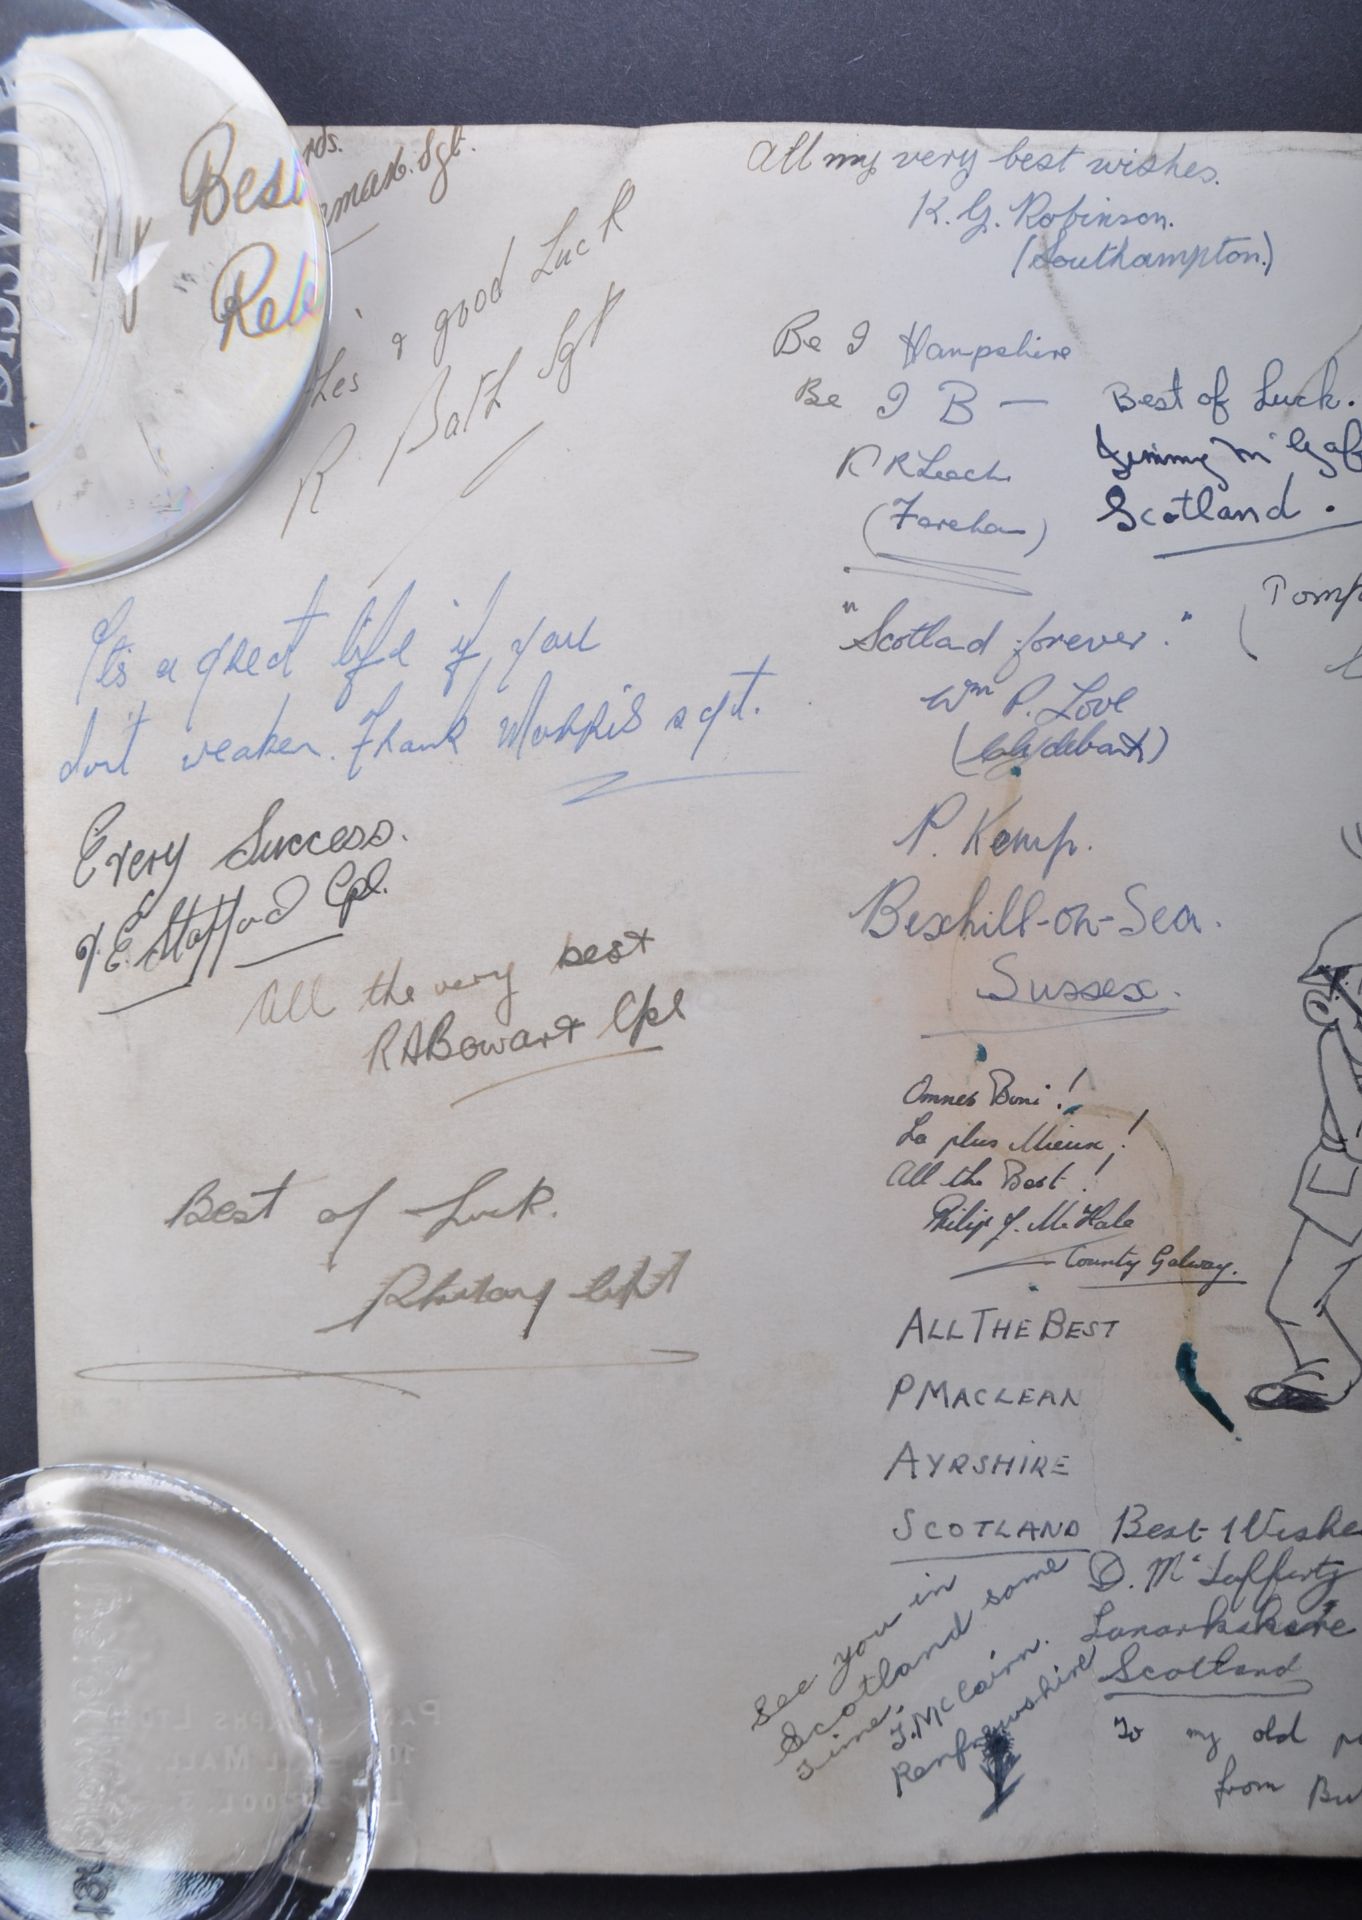 Best
rds.
Sgt.
& good Luck
R. Bath Sgt
It's a great life if you
don't weaken. Frank Morris sgt.
Every Success.
Stafford Cpl.
All the very best
R A Bowart Cpl
Best of Luck.
All my very best wishes.
K. G. Robinson.
(Southampton.)
Be I Hampshire
Be I B —
R Leach
(Fareham)
Best of Luck.
Jimmy
Scotland.
"Scotlad forever."
Wm P. Love
(Clydebank)
P. Kemp.
Bexhill-on-Sea.
Sussex.
Omnes Boni!
La plus Mieux!
All the Best!
Philip J. McHale
County Galway.
ALL THE BEST
P MACLEAN
AYRSHIRE
SCOTLAND
Best Wishe
D. McLafferty
Lanarkshire
Scotland
See you in
Scotland some
time.
J. McCairn.
Renfrewshire
To my old
from